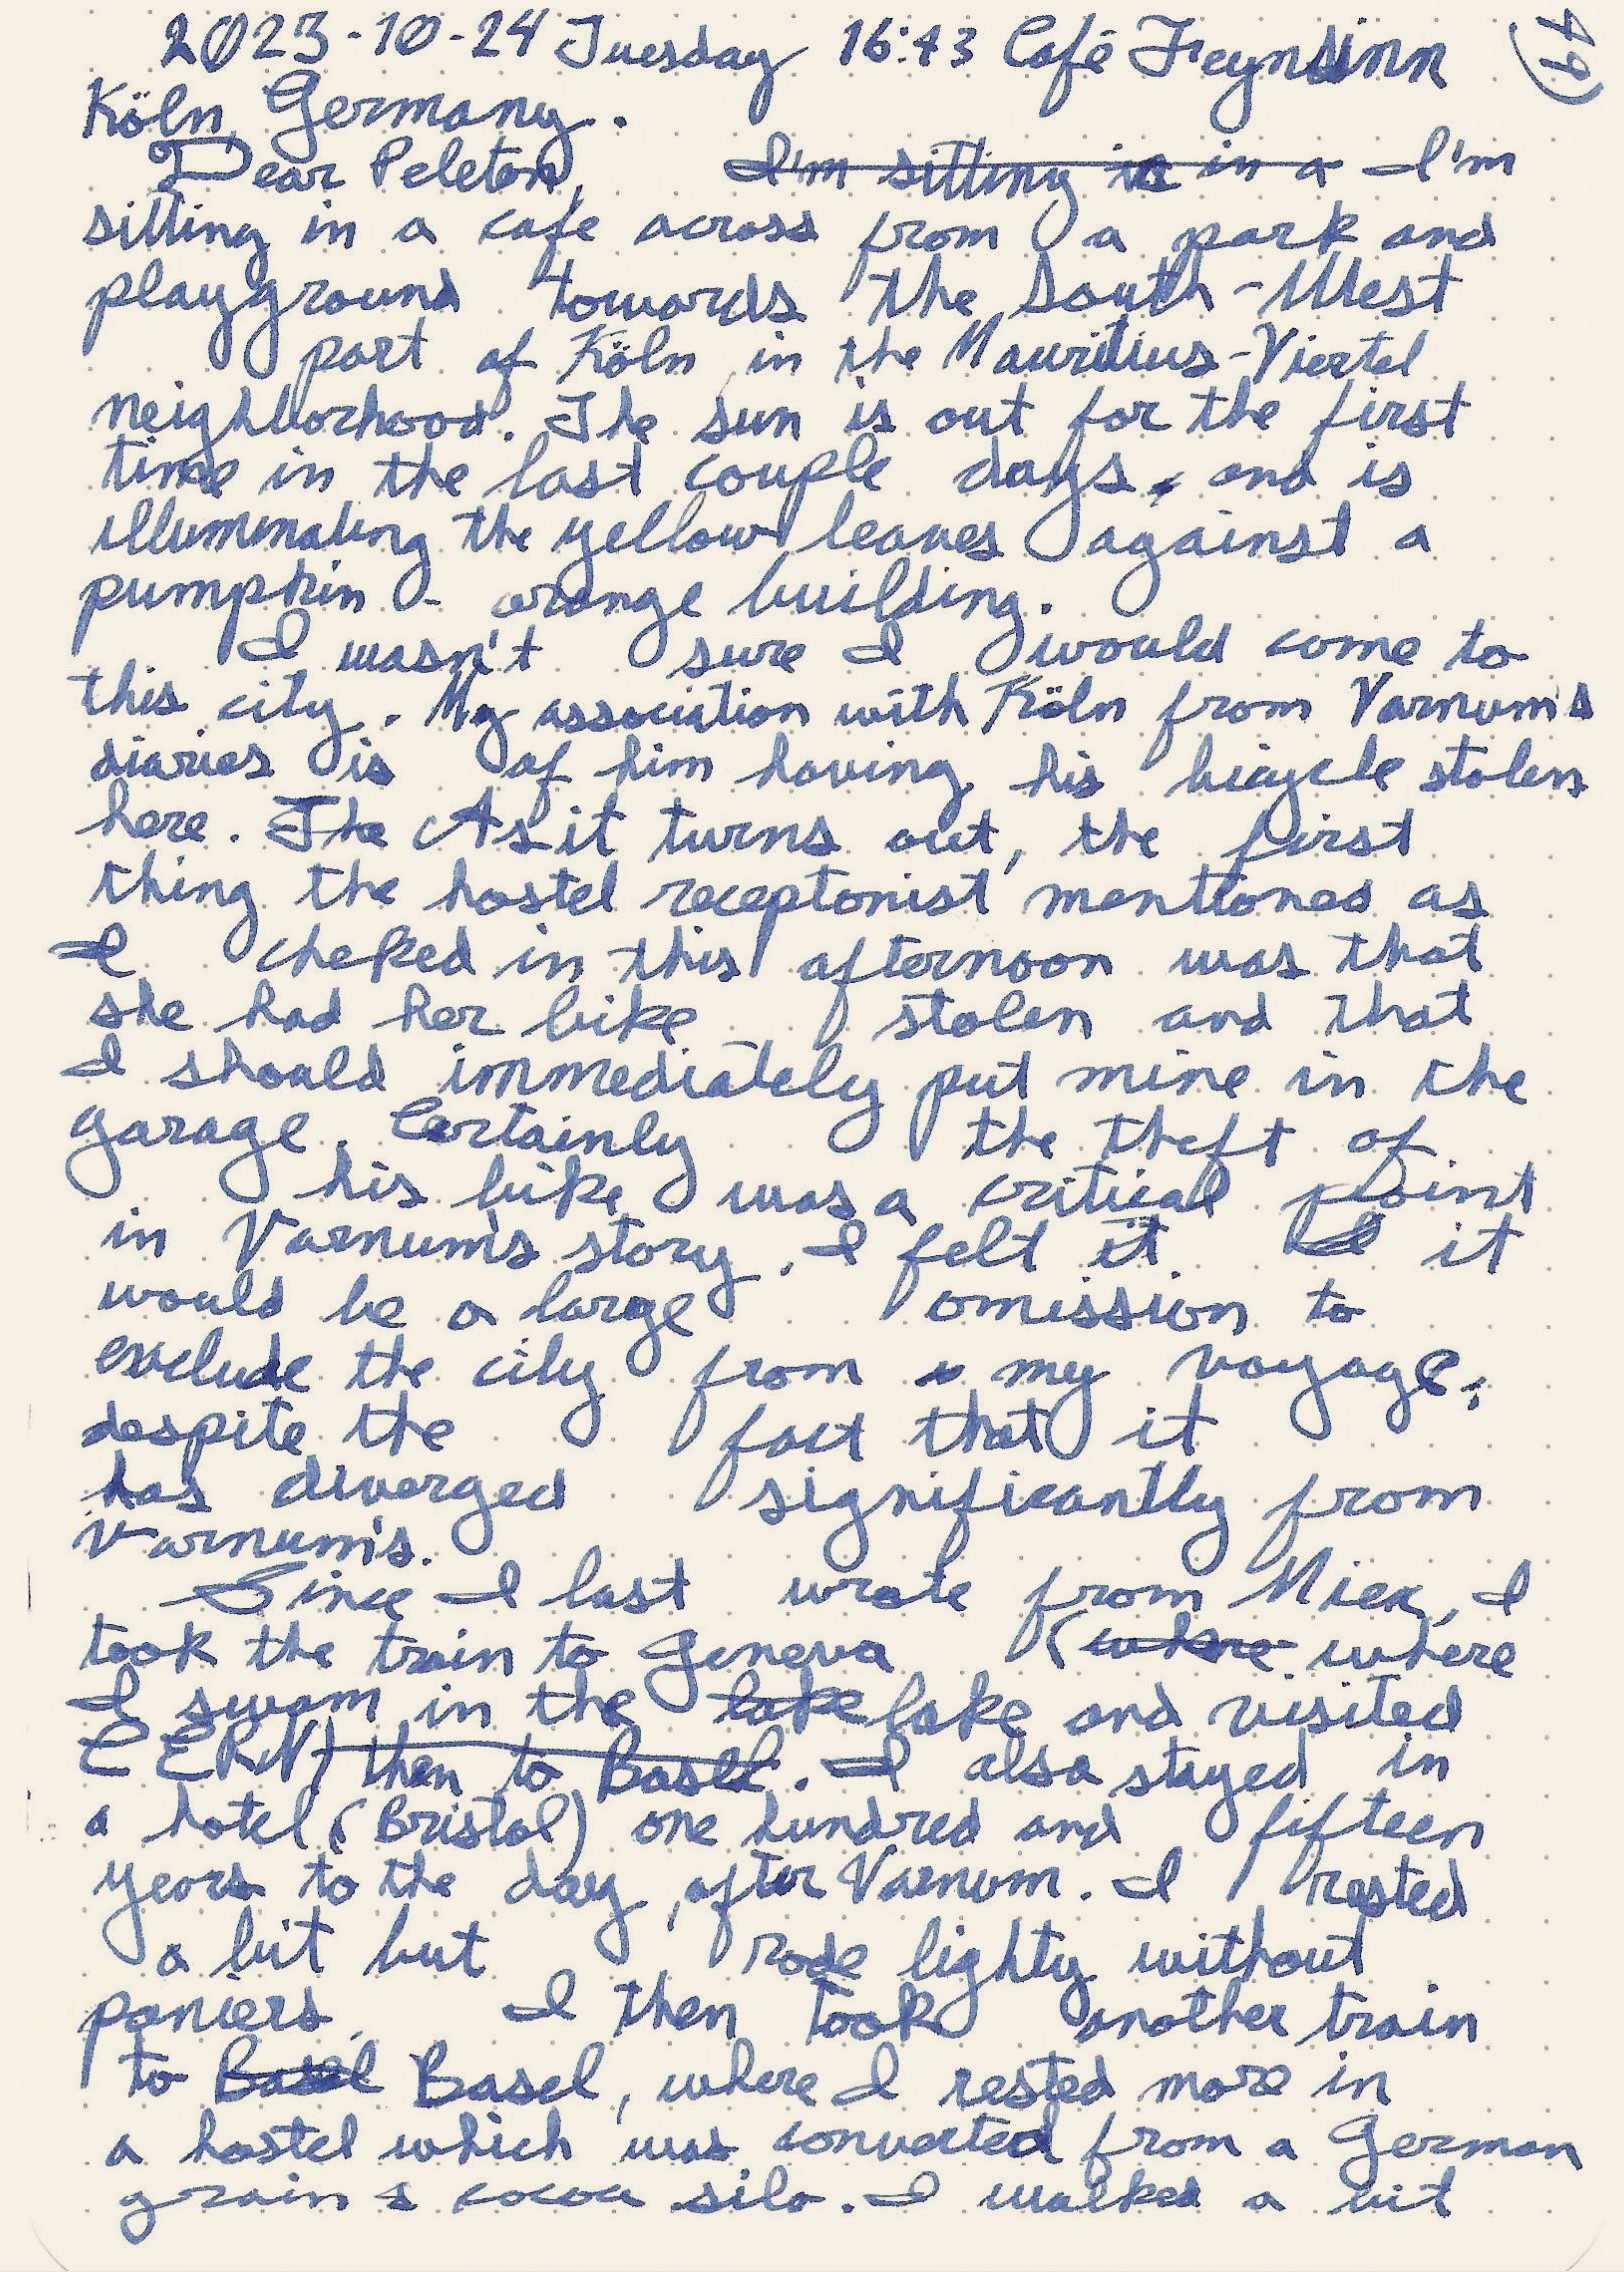 2023-10-24 Tuesday 16:43 Café Feynsinn
Köln, Germany.
Dear Peleton, I'm sitting is in a I'm
sitting in a cafe across from a park and
playground towards the South-West
part of Köln in the Mauritius-Viertel
neighborhood. The sun is out for the first
time in the last couple days, and is
illuminating the yellow leaves against a
pumpkin - orange building.
I wasn't sure I would come to
this city. My association with Köln from Varnum's
diaries is of him having his bicycle stolen
here. The As it turns out, the first
thing the hostel receptonist mentioned as
I cheked in this afternoon was that
she had her bike stolen and that
I should immediately put mine in the
garage. Certainly the theft of
his bike was a critical point
in Varnum's story, I felt it I it
would be a large omission to
exclude the city from my voyage,
despite the fact that it
has diverged significantly from
Varnum's.
Since I last wrote from Nice, I
took the train to Geneva (where where
I swam in the lake lake and visited
CERN) then to Basel. I also stayed in
a hotel (Bristol) one hundred and fifteen
years to the day, after Varnum. I rested
a bit but rode lighty without
paniers. I then took another train
to Basel Basel, where I rested more in
a hostel which was converted from a German
grain & cocoa silo. I walked a bit